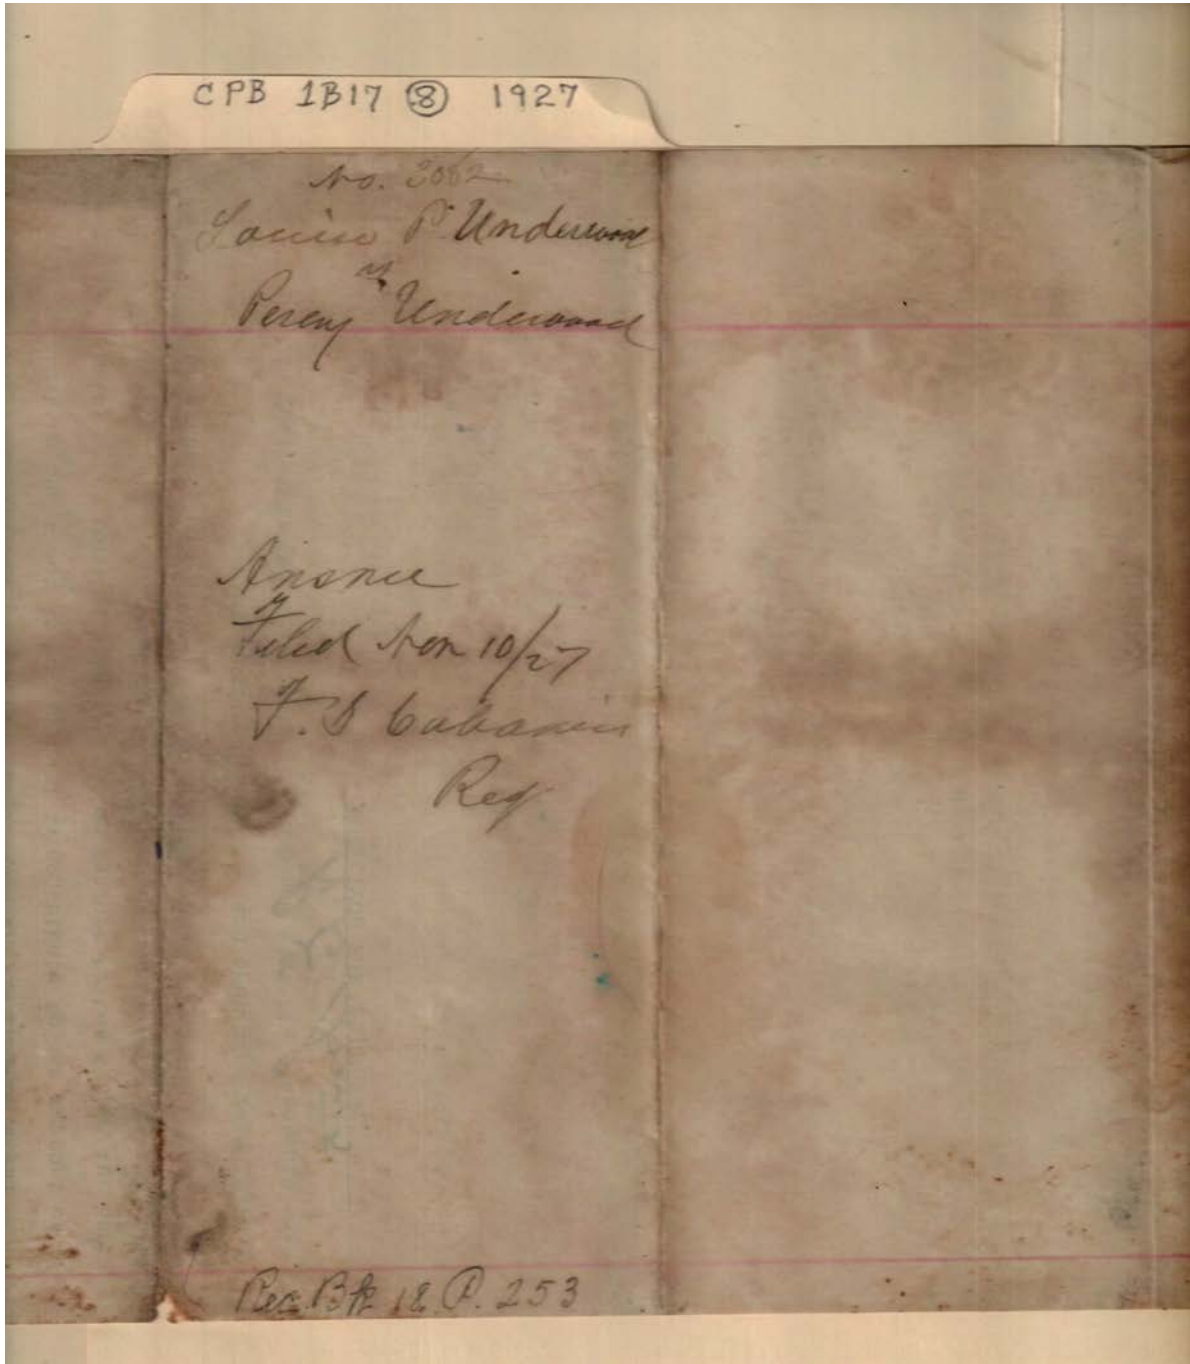 CPB 1B17 ⑧ 1927
No. 3062
Louise P. Underwood
vs
Percy Underwood
Answer
Filed Nov 10/27
F. S. Cabaniss
Reg
Rec. Bk 18 P. 253